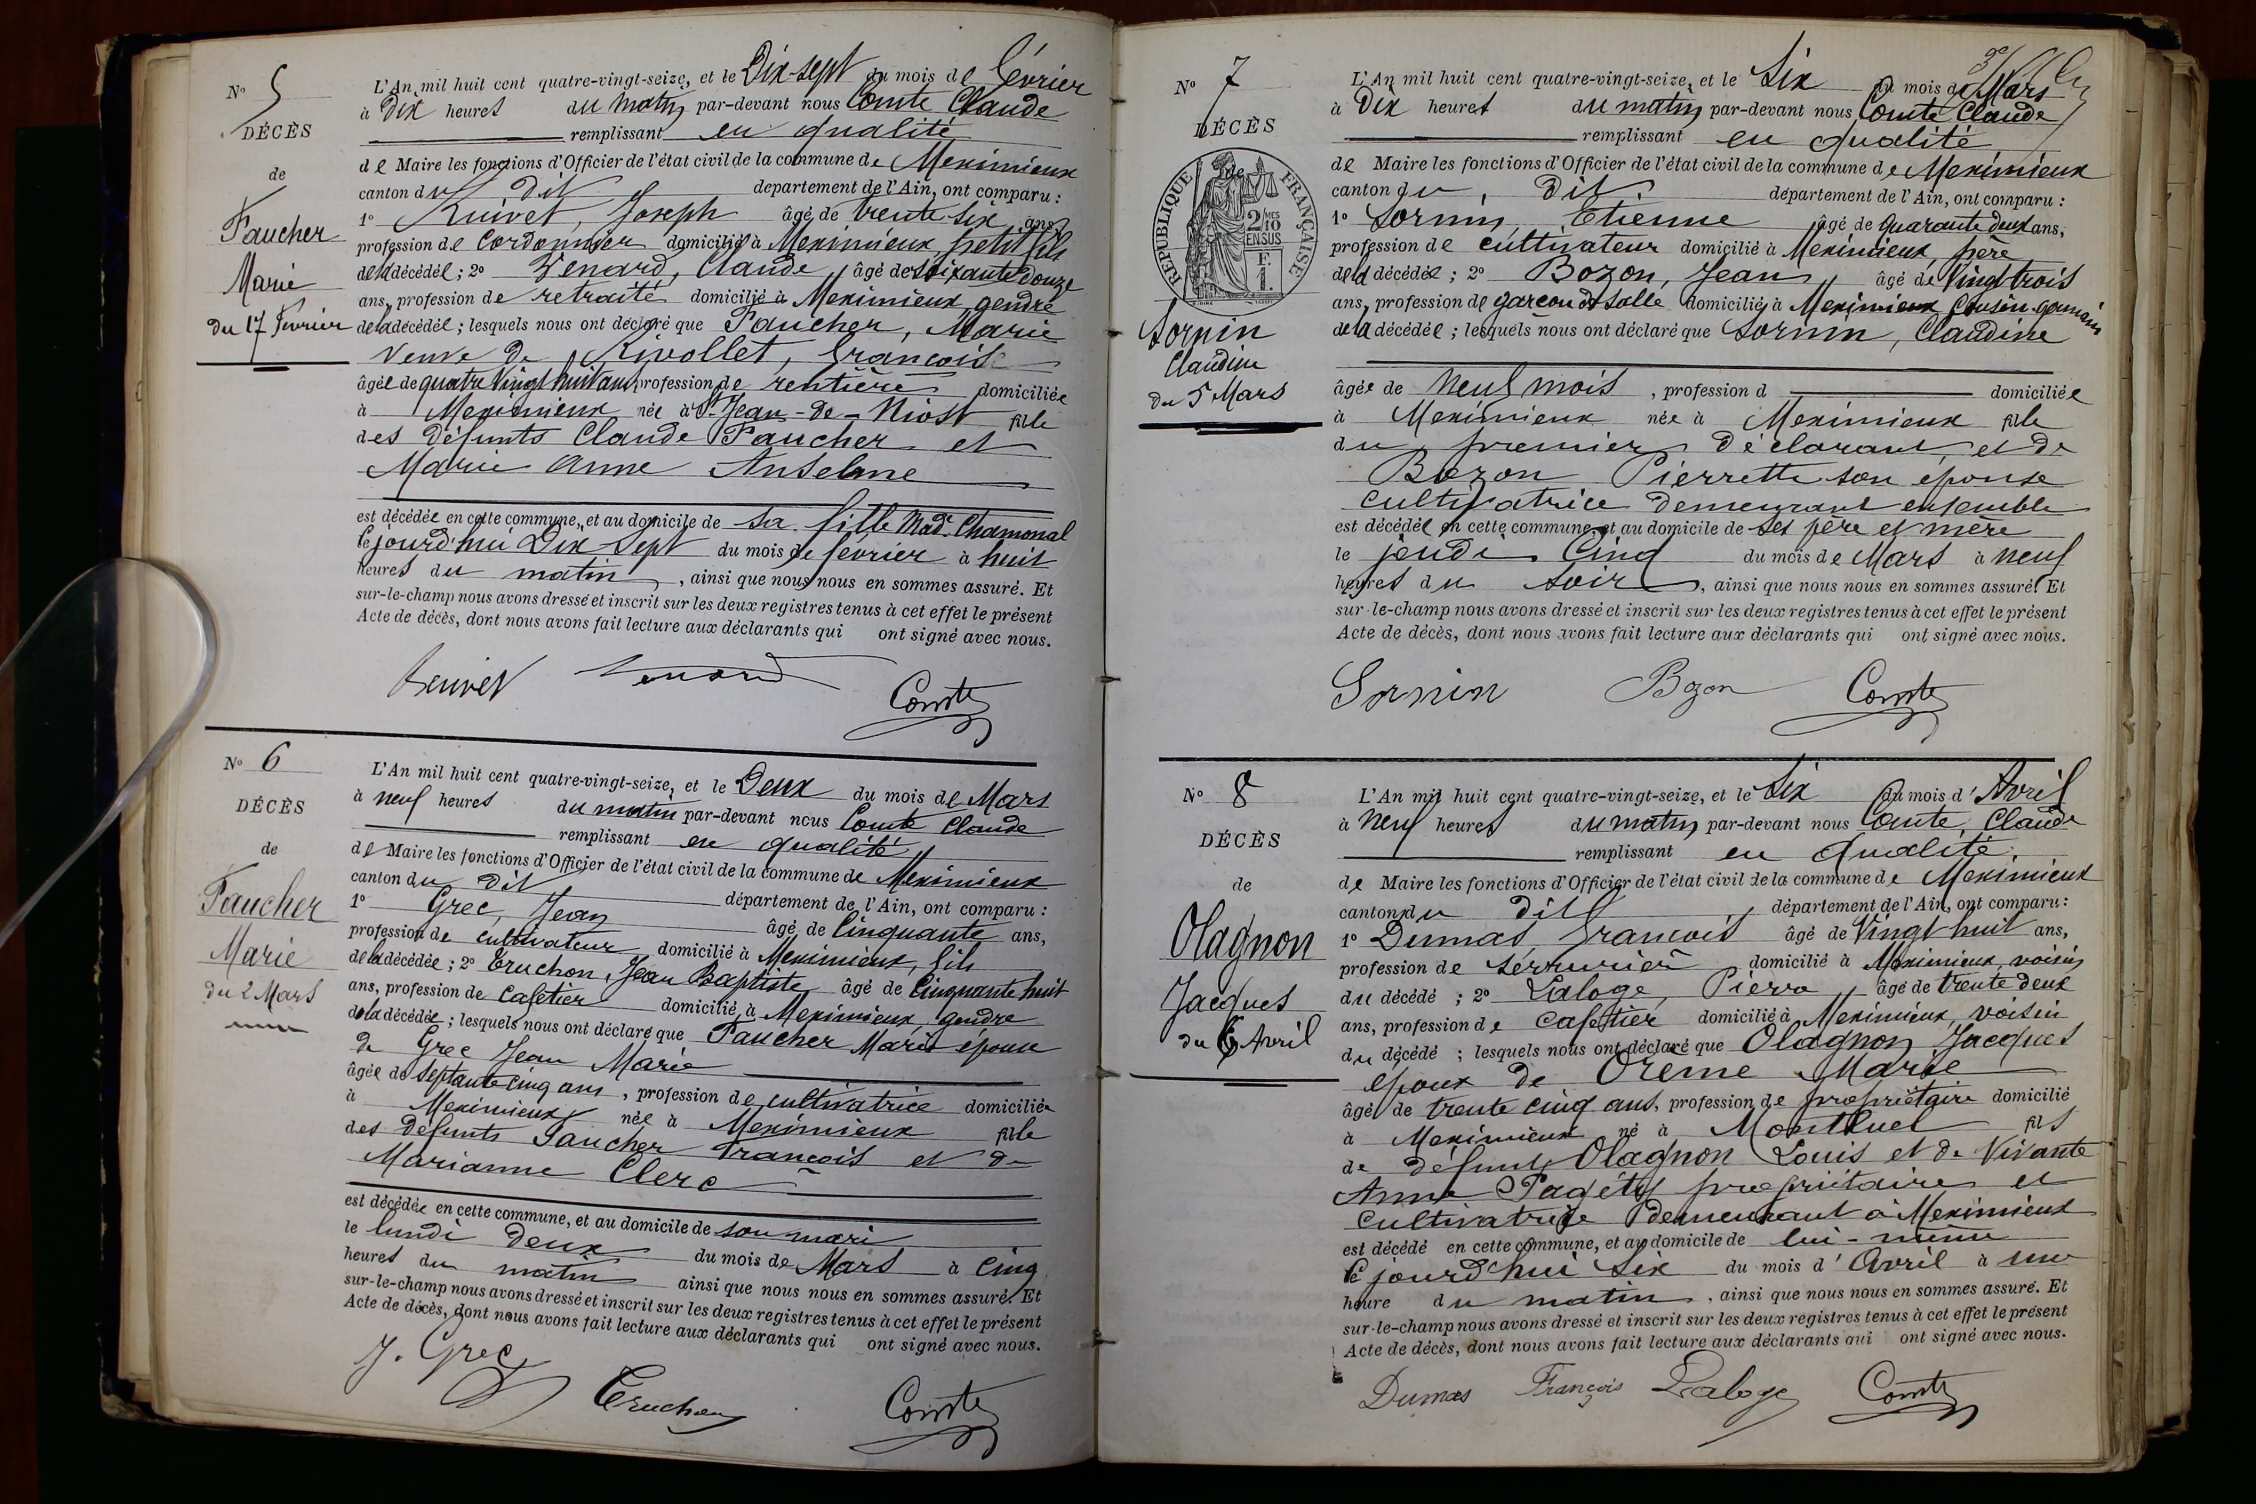 N° 5
DÉCÈS
de
Faucher
Marie
du 17 Février
L'An mil huit cent quatre-vingt-seize, et le Dix-sept du mois de Février
à Dix heures du matin par-devant nous Comte Claude
remplissant en qualité
de Maire les fonctions d'Officier de l'état civil de la commune de Meximieux
canton du dit département de l'Ain, ont comparu :
1° Ruivet, Joseph âgé de trente six ans,
profession de cordonnier domicilié à Meximieux, petit fils
de la décédée ; 2° Venard, Claude, âgé de soixante douze
ans, profession de retraité domicilié à Meximieux, gendre
de la décédée ; lesquels nous ont déclaré que Faucher, Marie
veuve de Rivollet, François
âgée de quatre vingt huit ans, profession de rentière domiciliée
à Meximieux née à St-Jean-de-Niost fille
des défunts Claude Faucher et
Marie Anne Anselme
est décédée en cette commune, et au domicile de sa fille Made. Chamonal
le jourd'hui Dix Sept du mois de février à huit
heures du matin, ainsi que nous nous en sommes assuré. Et
sur-le-champ nous avons dressé et inscrit sur les deux registres tenus à cet effet le présent
Acte de décès, dont nous avons fait lecture aux déclarants qui ont signé avec nous.
Ruivet Venard Comte
N° 6
DÉCÈS
de
Faucher
Marie
du 2 Mars
L'An mil huit cent quatre-vingt-seize, et le Deux du mois de Mars
à neuf heures du matin par-devant nous Comte Claude
remplissant en qualité
de Maire les fonctions d'Officier de l'état civil de la commune de Meximieux
canton du dit département de l'Ain, ont comparu :
1° Grec, Jean âgé de Cinquante ans,
profession de cultivateur domicilié à Meximieux, fils
de la décédée ; 2° Truchon, Jean Baptiste âgé de Cinquante huit
ans, profession de Cafetier domicilié à Meximieux, gendre
de la décédée ; lesquels nous ont déclaré que Faucher Marie épouse
de Grec Jean Marie
âgée de septante cinq ans, profession de cultivatrice domiciliée
à Meximieux née à Meximieux fille
des défunts Faucher François et de
Marianne Clerc
est décédée en cette commune, et au domicile de son mari
le lundi deux du mois de Mars à cinq
heures du matin ainsi que nous nous en sommes assuré. Et
sur-le-champ nous avons dressé et inscrit sur les deux registres tenus à cet effet le présent
Acte de décès, dont nous avons fait lecture aux déclarants qui ont signé avec nous.
J. Grec
Truchon Comte
N° 7
DÉCÈS
de
RÉPUBLIQUE FRANÇAISE
2/10 MES
EN SUS
F.
1.
Sornin
Claudine
du 5 Mars
L'An mil huit cent quatre-vingt-seize, et le Six du mois de Mars
à Dix heures du matin par-devant nous Comte Claude
remplissant en qualité
de Maire les fonctions d'Officier de l'état civil de la commune de Meximieux
canton du dit département de l'Ain, ont comparu :
1° Sornin, Etienne âgé de quarante deux ans,
profession de cultivateur domicilié à Meximieux, père
de la décédée ; 2° Bozon, Jean, âgé de Vingt trois
ans, profession de garçon de salle domicilié à Meximieux Cousin germain
de la décédée ; lesquels nous ont déclaré que Sornin, Claudine
âgée de neuf mois, profession d domiciliée
à Meximieux née à Meximieux fille
du premier déclarant, et de
Bozon Pierrette son épouse
cultivatrice demeurant ensemble
est décédée en cette commune, et au domicile de ses père et mère
le jeudi Cinq du mois de Mars à neuf
heures du soir, ainsi que nous nous en sommes assuré. Et
sur-le-champ nous avons dressé et inscrit sur les deux registres tenus à cet effet le présent
Acte de décès, dont nous avons fait lecture aux déclarants qui ont signé avec nous.
Sornin Bozon Comte
N° 8
DÉCÈS
de
Olagnon
Jacques
du 6 Avril
L'An mil huit cent quatre-vingt-seize, et le Six du mois d'Avril
à Neuf heures du matin par-devant nous Comte, Claude
remplissant en qualité
de Maire les fonctions d'Officier de l'état civil de la commune de Meximieux
canton du dit département de l'Ain, ont comparu :
1° Dumas, François âgé de Vingt huit ans,
profession de serrurier domicilié à Meximieux, voisin
du décédé ; 2° Laloge, Pierre, âgé de trente deux
ans, profession de cafetier domicilié à Meximieux, voisin
du décédé ; lesquels nous ont déclaré que Olagnon Jacques
époux de Orème Marie
âgé de trente cinq ans, profession de propriétaire domicilié
à Meximieux né à Montluel fils
de défunt Olagnon Louis et de Vivante
Anne Pagéty propriétaire et
cultivatrice demeurant à Meximieux
est décédé en cette commune, et au domicile de lui-même
le jourd'hui Six du mois d'Avril à une
heure du matin, ainsi que nous nous en sommes assuré. Et
sur-le-champ nous avons dressé et inscrit sur les deux registres tenus à cet effet le présent
Acte de décès, dont nous avons fait lecture aux déclarants qui ont signé avec nous.
Dumas François Laloge Comte